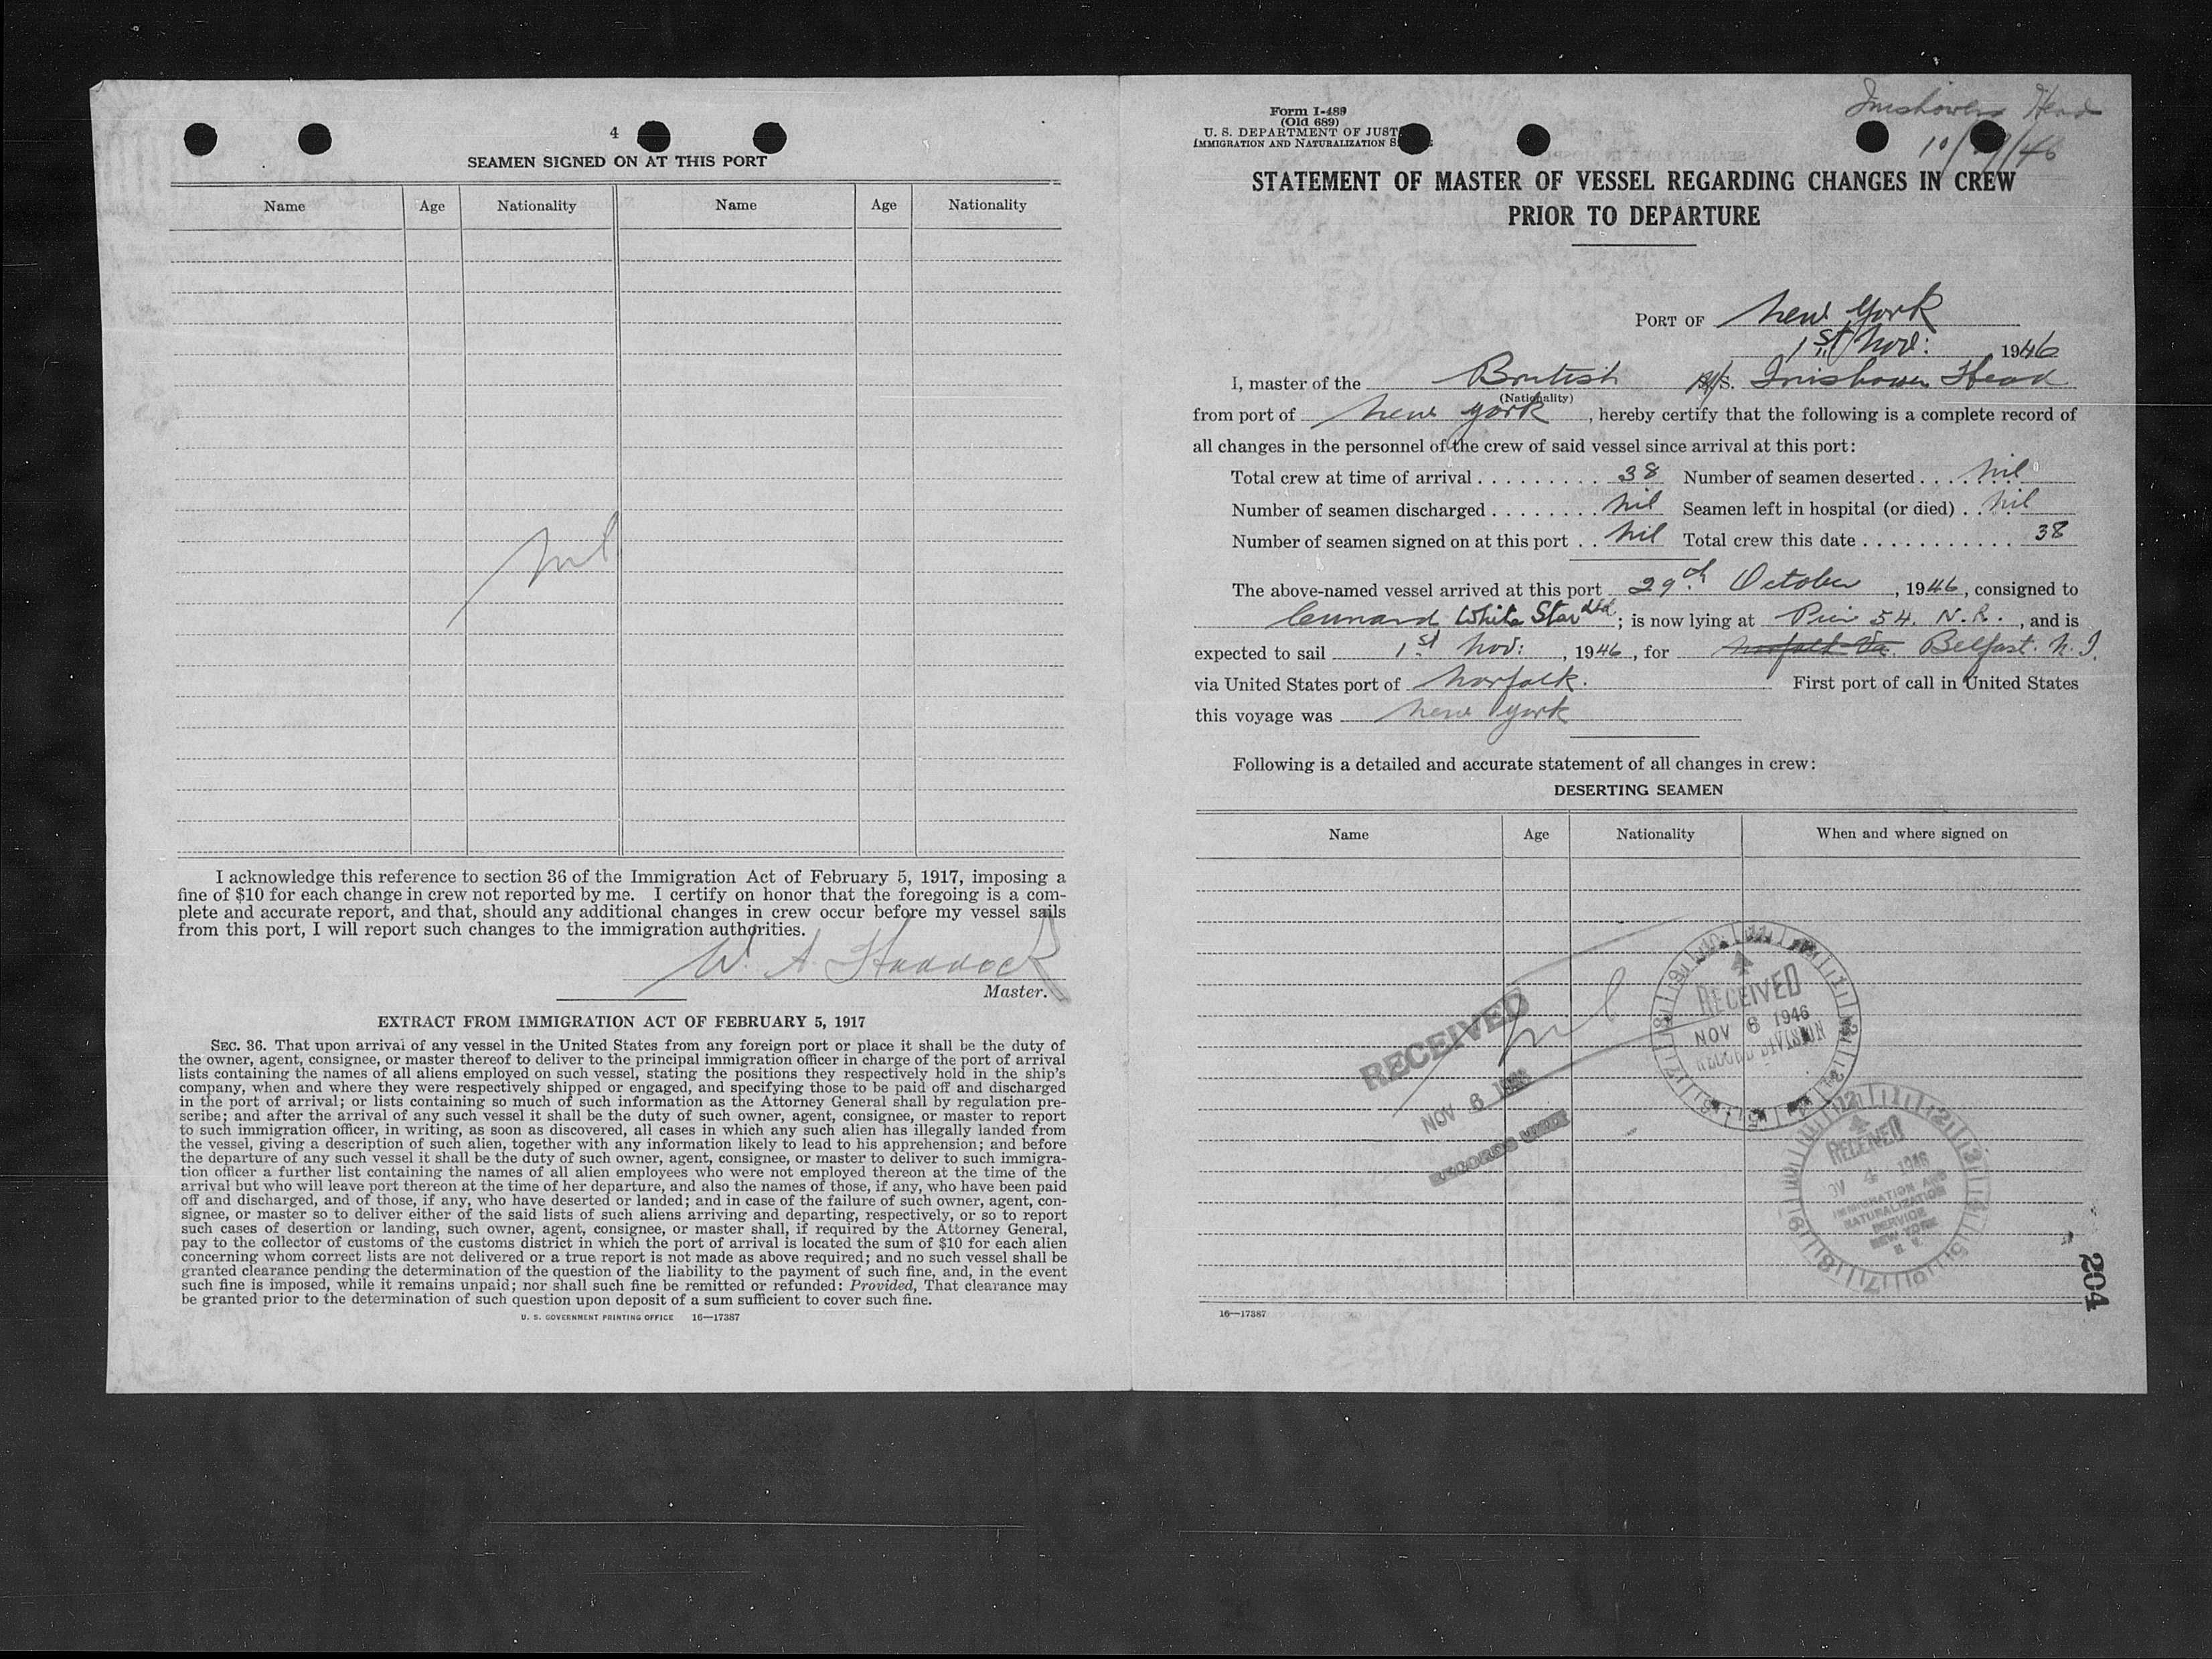 4
SEAMEN SIGNED ON AT THIS PORT
Name Age Nationality Name Age Nationality
Nil
I acknowledge this reference to section 36 of the Immigration Act of February 5, 1917, imposing a
fine of $10 for each change in crew not reported by me. I certify on honor that the foregoing is a com-
plete and accurate report, and that, should any additional changes in crew occur before my vessel sails
from this port, I will report such changes to the immigration authorities.
W. A. Haddock
Master.
EXTRACT FROM IMMIGRATION ACT OF FEBRUARY 5, 1917
SEC. 36. That upon arrival of any vessel in the United States from any foreign port or place it shall be the duty of
the owner, agent, consignee, or master thereof to deliver to the principal immigration officer in charge of the port of arrival
lists containing the names of all aliens employed on such vessel, stating the positions they respectively hold in the ship's
company, when and where they were respectively shipped or engaged, and specifying those to be paid off and discharged
in the port of arrival; or lists containing so much of such information as the Attorney General shall by regulation pre-
scribe; and after the arrival of any such vessel it shall be the duty of such owner, agent, consignee, or master to report
to such immigration officer, in writing, as soon as discovered, all cases in which any such alien has illegally landed from
the vessel, giving a description of such alien, together with any information likely to lead to his apprehension; and before
the departure of any such vessel it shall be the duty of such owner, agent, consignee, or master to deliver to such immigra-
tion officer a further list containing the names of all alien employees who were not employed thereon at the time of the
arrival but who will leave port thereon at the time of her departure, and also the names of those, if any, who have been paid
off and discharged, and of those, if any, who have deserted or landed; and in case of the failure of such owner, agent, con-
signee, or master so to deliver either of the said lists of such aliens arriving and departing, respectively, or so to report
such cases of desertion or landing, such owner, agent, consignee, or master shall, if required by the Attorney General,
pay to the collector of customs of the customs district in which the port of arrival is located the sum of $10 for each alien
concerning whom correct lists are not delivered or a true report is not made as above required; and no such vessel shall be
granted clearance pending the determination of the question of the liability to the payment of such fine, and, in the event
such fine is imposed, while it remains unpaid; nor shall such fine be remitted or refunded: Provided, That clearance may
be granted prior to the determination of such question upon deposit of a sum sufficient to cover such fine.
U. S. GOVERNMENT PRINTING OFFICE 16—17387
Inishowen Head
10/29/46
Form I-489
(Old 689)
U. S. DEPARTMENT OF JUST
IMMIGRATION AND NATURALIZATION S
STATEMENT OF MASTER OF VESSEL REGARDING CHANGES IN CREW
PRIOR TO DEPARTURE
PORT OF New York
1st Nov: 1946
I, master of the British S. Inishowen Head
(Nationality)
from port of New York, hereby certify that the following is a complete record of
all changes in the personnel of the crew of said vessel since arrival at this port:
Total crew at time of arrival . . . . . . . . . 38 Number of seamen deserted . . . . . . Nil
Number of seamen discharged . . . . . . . . Nil Seamen left in hospital (or died) . . Nil
Number of seamen signed on at this port . . Nil Total crew this date . . . . . . . . . . . . 38
The above-named vessel arrived at this port 29th October, 1946, consigned to
Cunard White Star Ltd; is now lying at Pier 54. N.R., and is
expected to sail 1st Nov:, 1946, for Norfolk Va. Belfast. N.I.
via United States port of Norfolk. First port of call in United States
this voyage was New York
Following is a detailed and accurate statement of all changes in crew:
DESERTING SEAMEN
Name Age Nationality When and where signed on
Nil
RECEIVED
NOV 6 1946
RECORDS
RECEIVED
NOV 6 1946
SECOND DIVISION
RECEIVED
NOV 4 1946
IMMIGRATION AND
NATURALIZATION
SERVICE
NEW YORK
N. Y.
204
16—17387